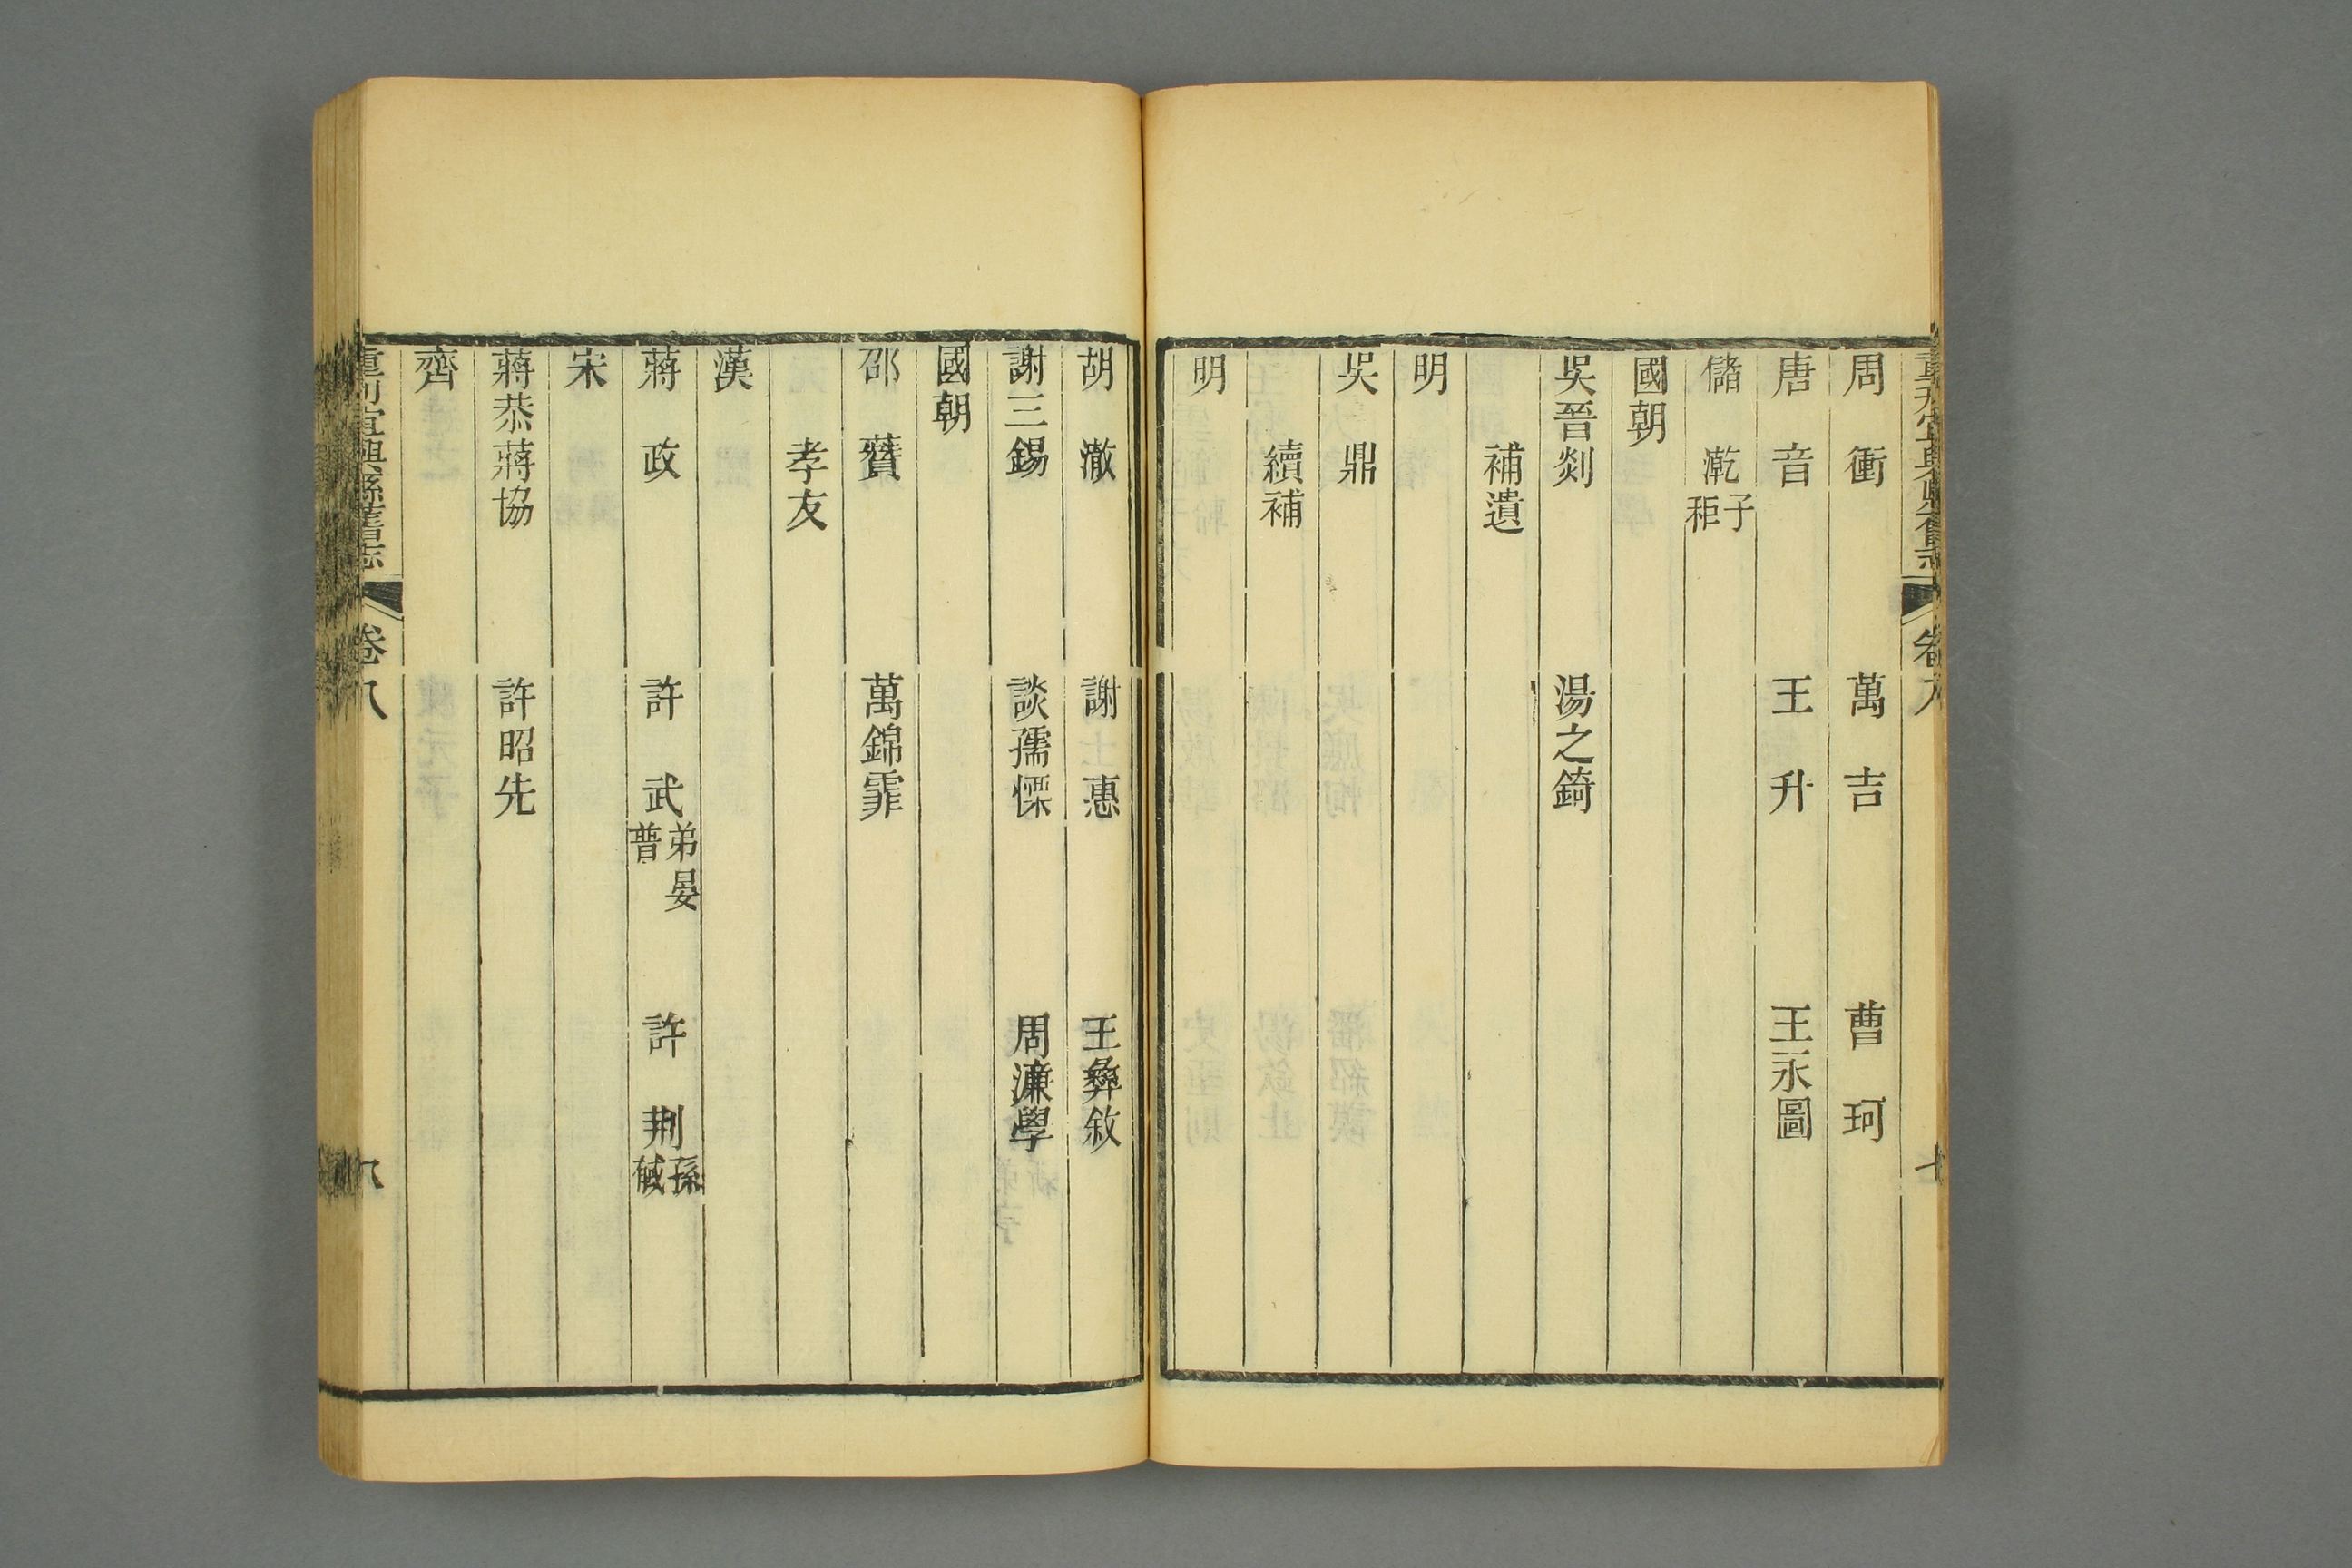 周衝　萬吉　曹珂
唐音　王升　王永圖
儲㵩子秬
國朝
吳晉剡　湯之錡
補遺
明
吳鼎
續補
明
胡澈　謝士惠　王彝敘
謝三錫　談孺慄　周濂學
國朝
邵贇　萬錦霏
孝友
漢
蔣政　許武弟晏普　許荆孫
宋
蔣恭蔣協　許昭先
齊
重刊宜興縣舊志　卷八　八